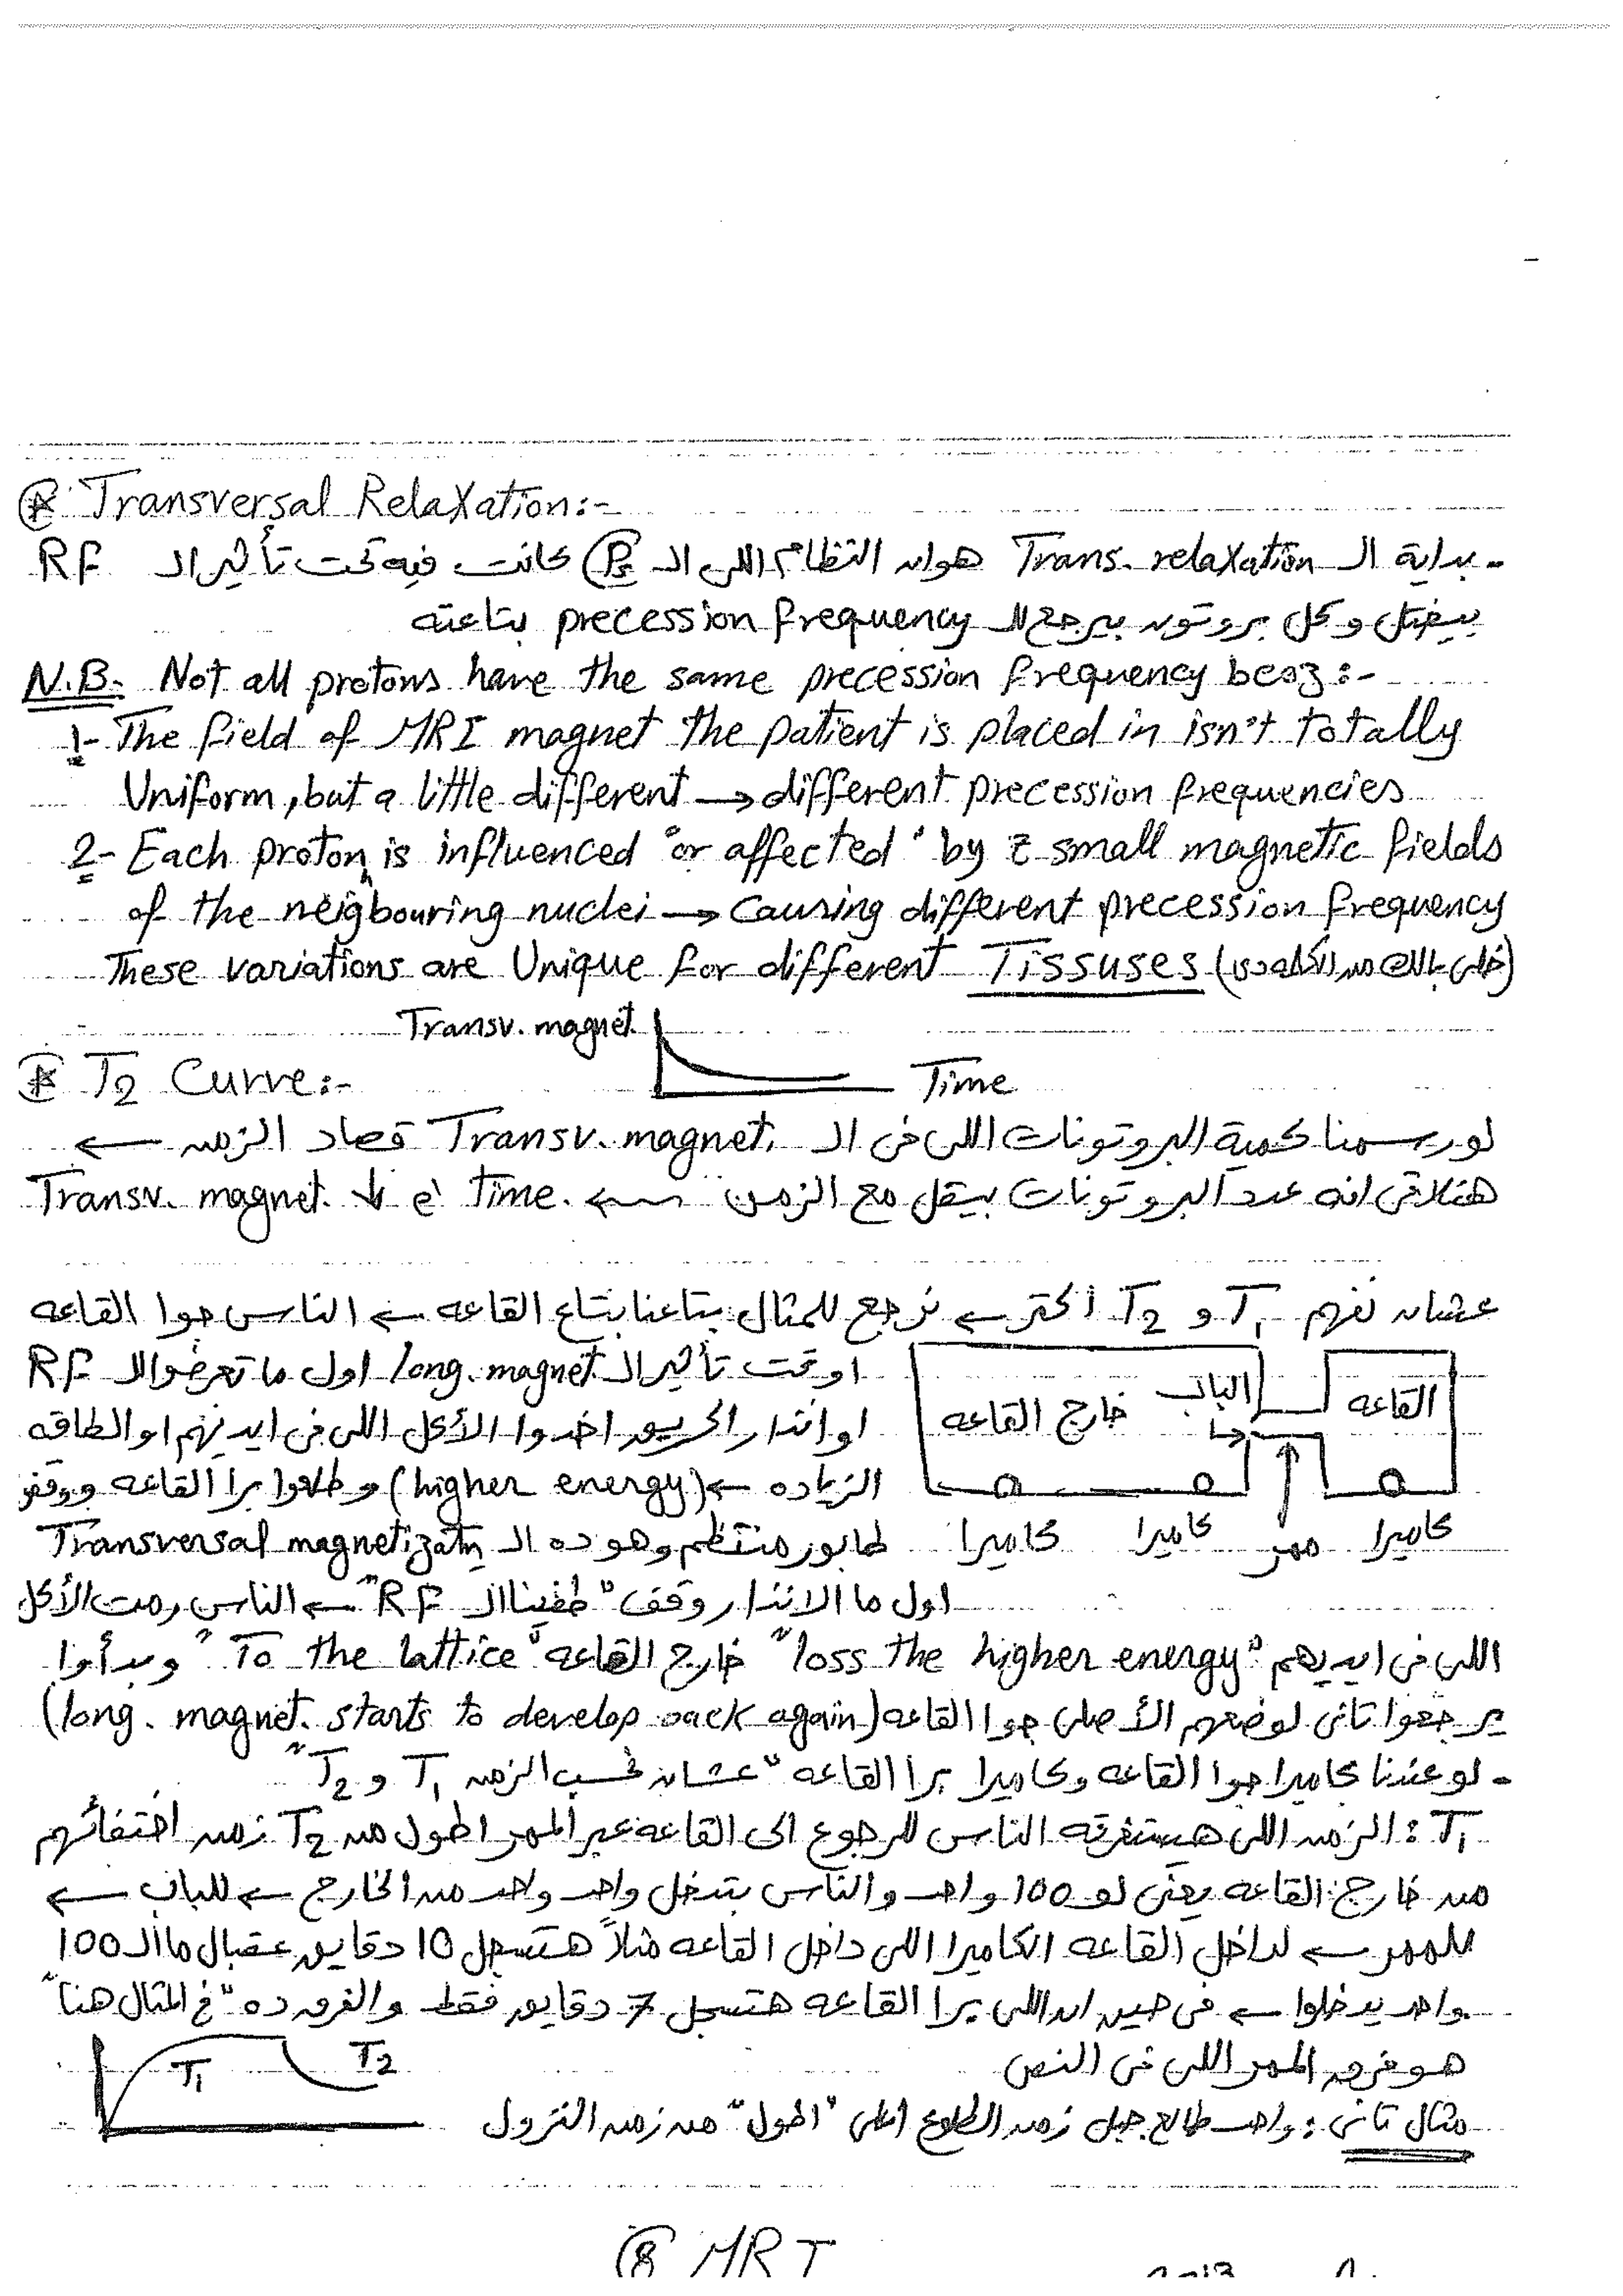 Transversal Relaxation:-
- بداية الـ Trans. relaxation هو ان النظام اللى الـ Ps كانت فيه تحت تأثير الـ RF
بيختل وكل بروتون بيرجع للـ precession frequency بتاعته
N.B. Not all protons have the same precession frequency becoz:-
1- The field of MRI magnet the patient is placed in isn't totally
Uniform, but a little different → different precession frequencies
2- Each proton is influenced "or affected" by c̄ small magnetic fields
of the neigbouring nuclei → Causing different precession frequency
These variations are Unique for different Tissuses (خلى بالك من الكلمه دى)
Transv. magnet.
Time
T2 Curve:-
لو رسمنا كمية البروتونات اللى فى الـ Transv. magnet. قصاد الزمن ←
هنلاقى انه عدد البروتونات بيقل مع الزمن ← Transv. magnet. ↓ e' time.
عشان نفهم T1 و T2 اكتر ← نرجع للمثال بتاعنا بتاع القاعه ← الناس جوا القاعه
او تحت تأثير الـ long. magnet. اول ما تعرضوا للـ RF
او انذار الحريق اخدوا الأكل اللى فى ايديهم او الطاقه
الزياده ← (higher energy) وطلعوا برا القاعه ووقفو
طابور منتظم وهو ده الـ Transversal magnetizatn
القاعه
الباب
خارج القاعه
كاميرا
ممر
كاميرا
كاميرا
اول ما الانذار وقف "طفينا الـ RF" ← الناس رمت الأكل
اللى فى ايديهم "loss the higher energy" خارج القاعه "To the lattice" وبدأوا
يرجعوا تانى لوضعهم الأصلى جوا القاعه (long. magnet. starts to develop back again)
- لو عندنا كاميرا جوا القاعه وكاميرا برا القاعه "عشان نحسب الزمن T1 و T2"
T1 : الزمن اللى هيستغرقه الناس للرجوع الى القاعه عبر الممر اطول من T2 زمن اختفائهم
من خارج القاعه يعنى لو 100 واحد والناس بتدخل واحد واحد من الخارج ← للباب ←
للممر ← لداخل القاعه الكاميرا اللى داخل القاعه مثلاً هتسجل 10 دقايق عقبال ما الـ 100
واحد يدخلوا ← فى حين ان اللى برا القاعه هتسجل 7 دقايق فقط والفرق ده "فى المثال هنا"
هو فرق الممر اللى فى النص
T1
T2
مثال تانى : واحد طالع جبل زمن الطلوع اعلى "اطول" من زمن النزول
8 MRI